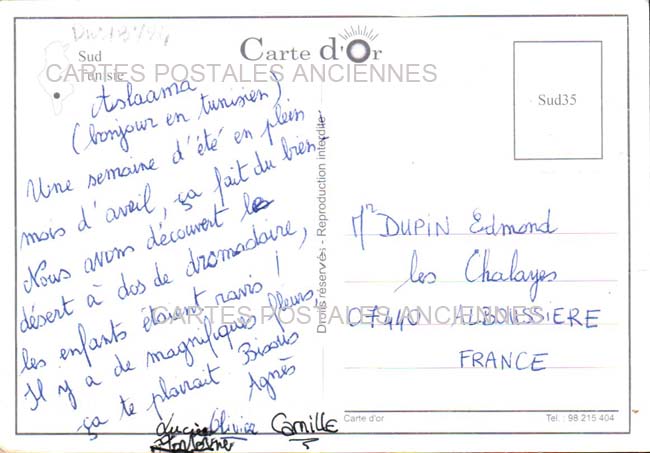 Carte d'Or
Sud
Tunisie
CARTES POSTALES ANCIENNES
Sud35
Aslaama
(bonjour en tunisien)
Une semaine d'été en plein
mois d'avril, ça fait du bien.
Nous avons découvert le
désert à dos de dromadaire,
les enfants étaient ravis !
Il y a de magnifiques fleurs,
ça te plairait Bisous
Agnès
Lucie Olivier Camille
Droits réservés - Reproduction interdite
Mr DUPIN Edmond
les Chalayes
07440 ALBOUSSIERE
FRANCE
CARTES POSTALES ANCIENNES
Carte d'or
Tel. : 98 215 404